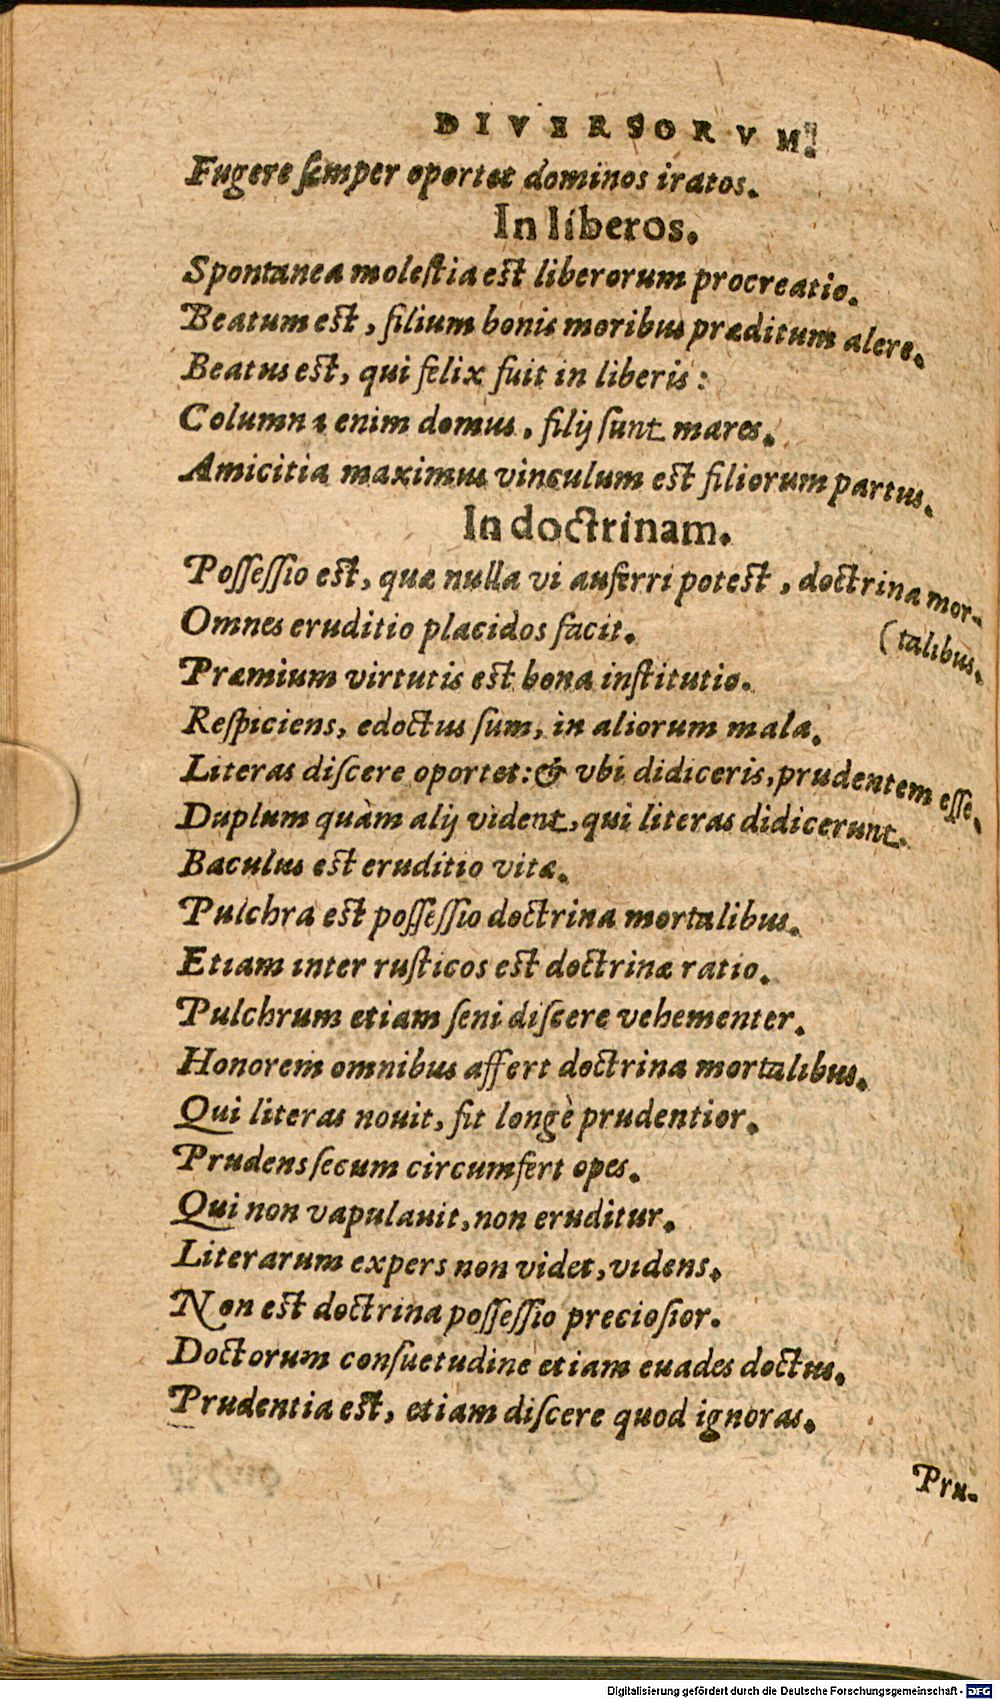 DIVERSORVM
Fugere semper oportet dominos iratos.
In liberos.
Spontanea molestia est liberorum procreatio.
Beatum est, filium bonis moribus præditum alere.
Beatus est, qui felix fuit in liberis:
Columnæ enim domus, filij sunt mares.
Amicitia maximus vinculum est filiorum partus.
In doctrinam.
Possessio est, quæ nulla vi auferri potest, doctrina mor-
Omnes eruditio placidos facit. (talibus.
Præmium virtutis est bona institutio.
Respiciens, edoctus sum, in aliorum mala.
Literas discere oportet: & vbi didiceris, prudentem esse.
Duplum quàm alij vident, qui literas didicerunt.
Baculus est eruditio vitæ.
Pulchra est possessio doctrina mortalibus.
Etiam inter rusticos est doctrinæ ratio.
Pulchrum etiam seni discere vehementer.
Honorem omnibus affert doctrina mortalibus.
Qui literas nouit, fit longè prudentior.
Prudens secum circumfert opes.
Qui non vapulauit, non eruditur.
Literarum expers non videt, videns.
Non est doctrina possessio preciosior.
Doctorum consuetudine etiam euades doctus.
Prudentia est, etiam discere quod ignoras.
Pru-
Digitalisierung gefördert durch die Deutsche Forschungsgemeinschaft - DFG